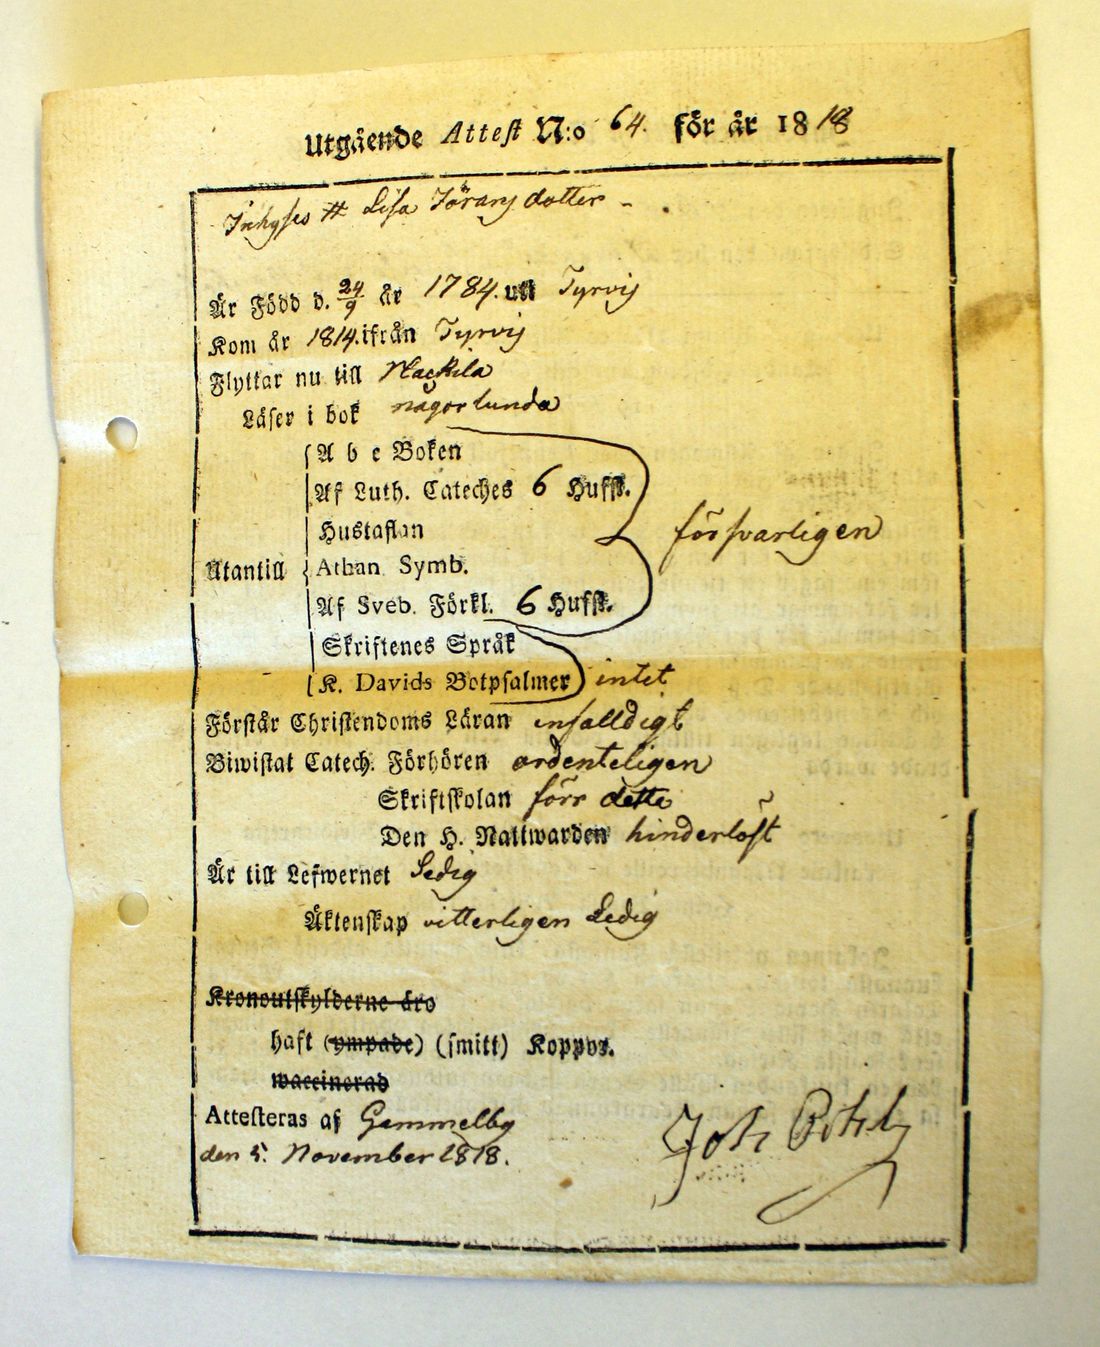 Utgående Attest N:o 64. för år 1818
Inhyses # Lisa Jörans dotter -.
Är Född d. 24/9 år 1784. uti Tyrvis
Kom år 1814. ifrån Tyrvis
Flyttar nu till Hackila
Läser i bok någorlunda
A b c Boken
Af Luth. Cateches 6 Hufst.
Hustaflan
försvarligen
Utantill
Athan Symb.
Af Sveb. Förkl. 6 Hufst.
Skriftenes Språk
K. Davids Botpsalmer intet
Förstår Christendoms Läran enfalldigt
Biwistat Catech. Förhören ordenteligen
Skriftskolan förr dette
Den H. Nattwarden hinderlöst
Är till Lefwernet Ledig
Äktenskap vitterligen Ledig
Kronoutskylderne äro
haft (ympade) (smitt) Koppor.
waccinerad
Attesteras af Gammelby
den 5. November 1818.
Joh